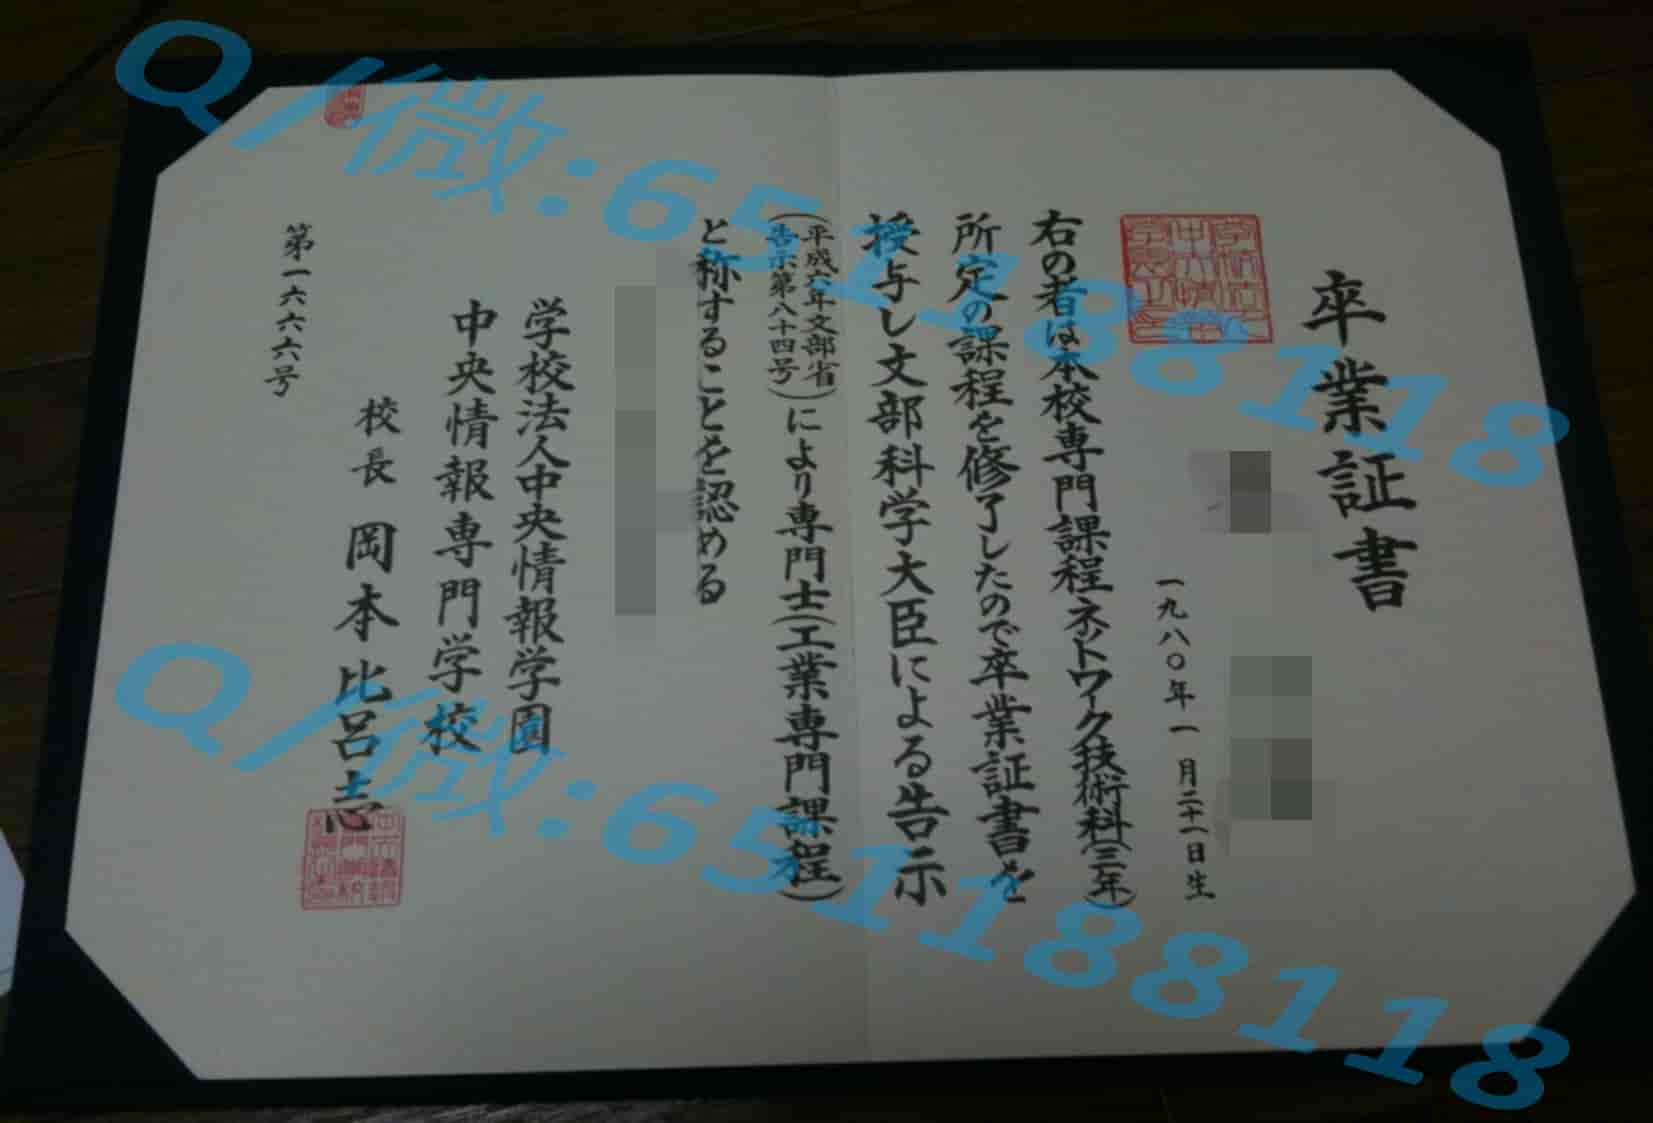 卒業証書
一九八〇年一月二十一日生
右の者は本校専門課程ネットワーク技術科(三年)
所定の課程を修了したので卒業証書を
授与し文部科学大臣による告示
(平成六年文部省
告示第八十四号)
により専門士(工業専門課程)
と称することを認める
学校法人中央情報学園
中央情報専門学校
校長 岡本比呂志
第一六六六号
Q/微:651188118
Q/微:651188118